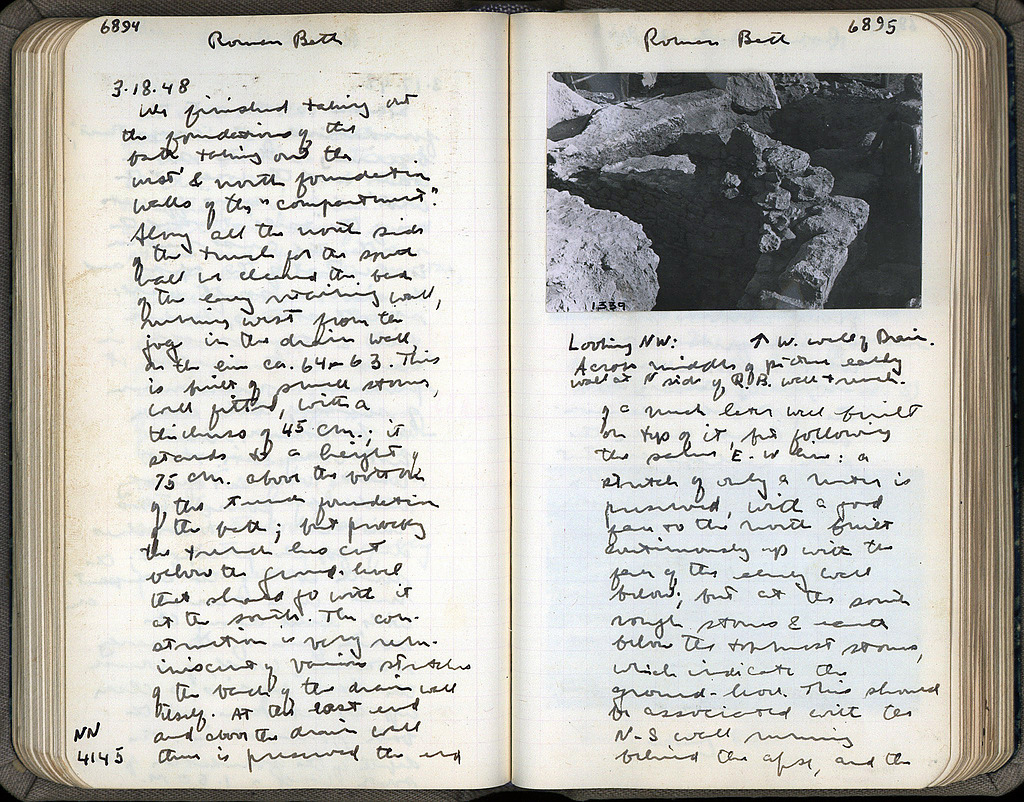 6894
Roman Bath
3.18.48
We finished taking out
the foundations of the
bath taking out the
west & north foundation
walls of the "compartment".
Along all the north side
of the trench for the south
wall we cleared the back
of the early retaining wall,
running west from the
jog in the drain wall,
on the line ca. 64-63. This
is built of small stones,
well fitted, with a
thickness of 45 cm.; it
stands to a height of
75 cm. above the bottom
of the trench foundation
of the bath; but probably
the trench has cut
below the ground-level
that should go with it
at the south. The con-
struction is very rem-
iniscent of various stretches
of the back of the drain wall
itself. At the east end
and above the drain wall
there is preserved the end
NN
4145
6895
Roman Bath
1339
Looking NW: ↑ W. wall of Drain.
Across middle of picture early
wall at N side of R.B. wall trench.
of a much later wall built
on top of it, but following
the same E-W line: a
stretch of only a meter is
preserved, with a good
face to the north built
continuously up with the
face of the early wall
below; but at the south
rough stones & earth
below the topmost stones,
which indicate the
ground-level. This should
be associated with the
N-S wall running
behind the apse, and the